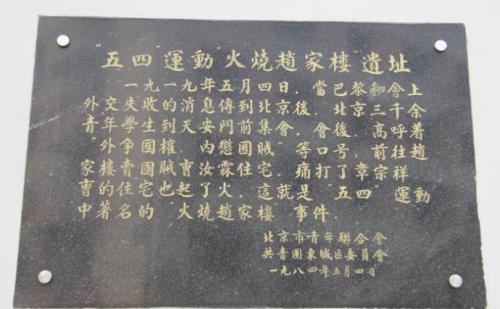 "五四"運動"火燒趙家樓"遺址
一九一九年五月四日，當巴黎和會上
外交失敗的消息傳到北京後，北京三千余
青年學生到天安門前集會，會後高呼着
"外争國權，内懲國賊"等口号前往趙
家樓賣國賊曹汝霖住宅，痛打了章宗祥
曹的住宅也起了火，這就是"五四"運動
中著名的"火燒趙家樓"事件．
北京市青年聯合會
共青團東城區委員會
一九八四年五月四日